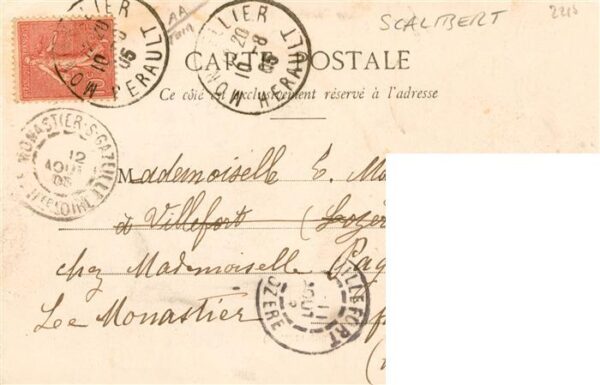 SCALIBERT
MONTPELLIER
HERAULT
10-8
05
MONTPELLIER
HERAULT
20
10-8
05
CARTE POSTALE
Ce côté est exclusivement réservé à l'adresse
MONASTIER-S-GAZEILLE
12
AOUT
05
Hte LOIRE
Mademoiselle E. Mo
à Villefort (Lozèr
chez Mademoiselle Pag
Le Monastier
VILLEFORT
11
AOUT
LOZERE